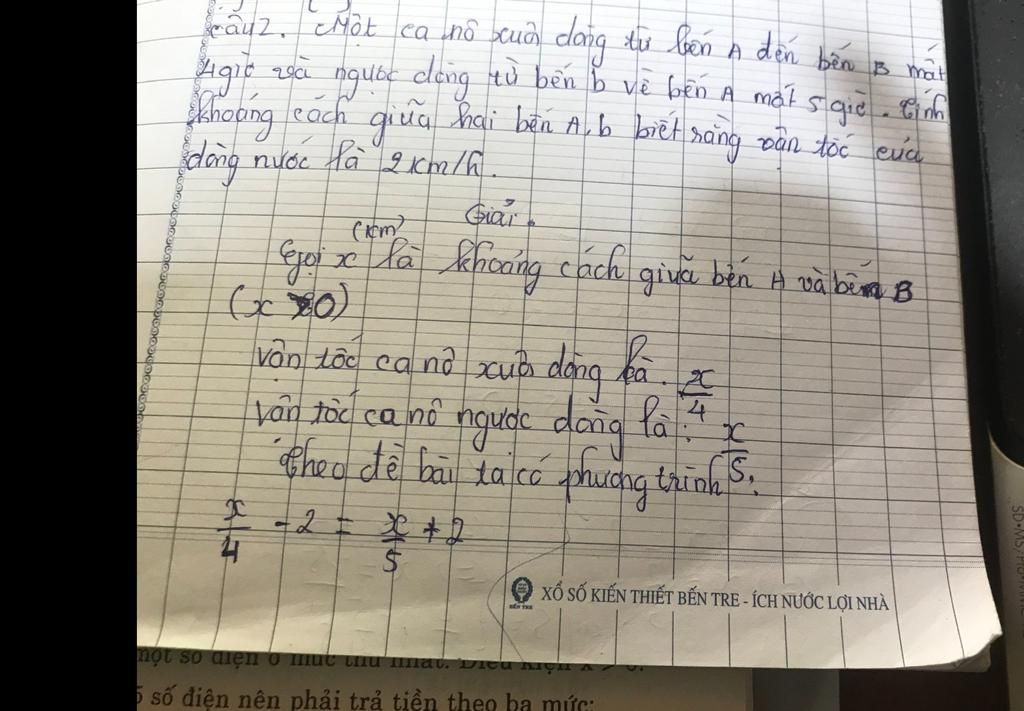 câu 2. Một ca nô xuôi dòng từ bến A đến bến B mất
4giờ và ngược dòng từ bến b về bến A mất 5 giờ. tính
khoảng cách giữa hai bến A, b biết rằng vận tốc của
dòng nước là 2 km/h.
Giải.
(km)
Gọi x là khoảng cách giữa bến A và bến B
(x > 0)
vận tốc ca nô xuôi dòng là. x/4
vận tốc ca nô ngược dòng là: x/5
theo đề bài ta có phương trình:
x/4 - 2 = x/5 + 2
BẾN TRE
XỔ SỐ KIẾN THIẾT BẾN TRE - ÍCH NƯỚC LỢI NHÀ
một số điện ở mức thứ nhất. Điều kiện x > 0.
5 số điện nên phải trả tiền theo ba mức: